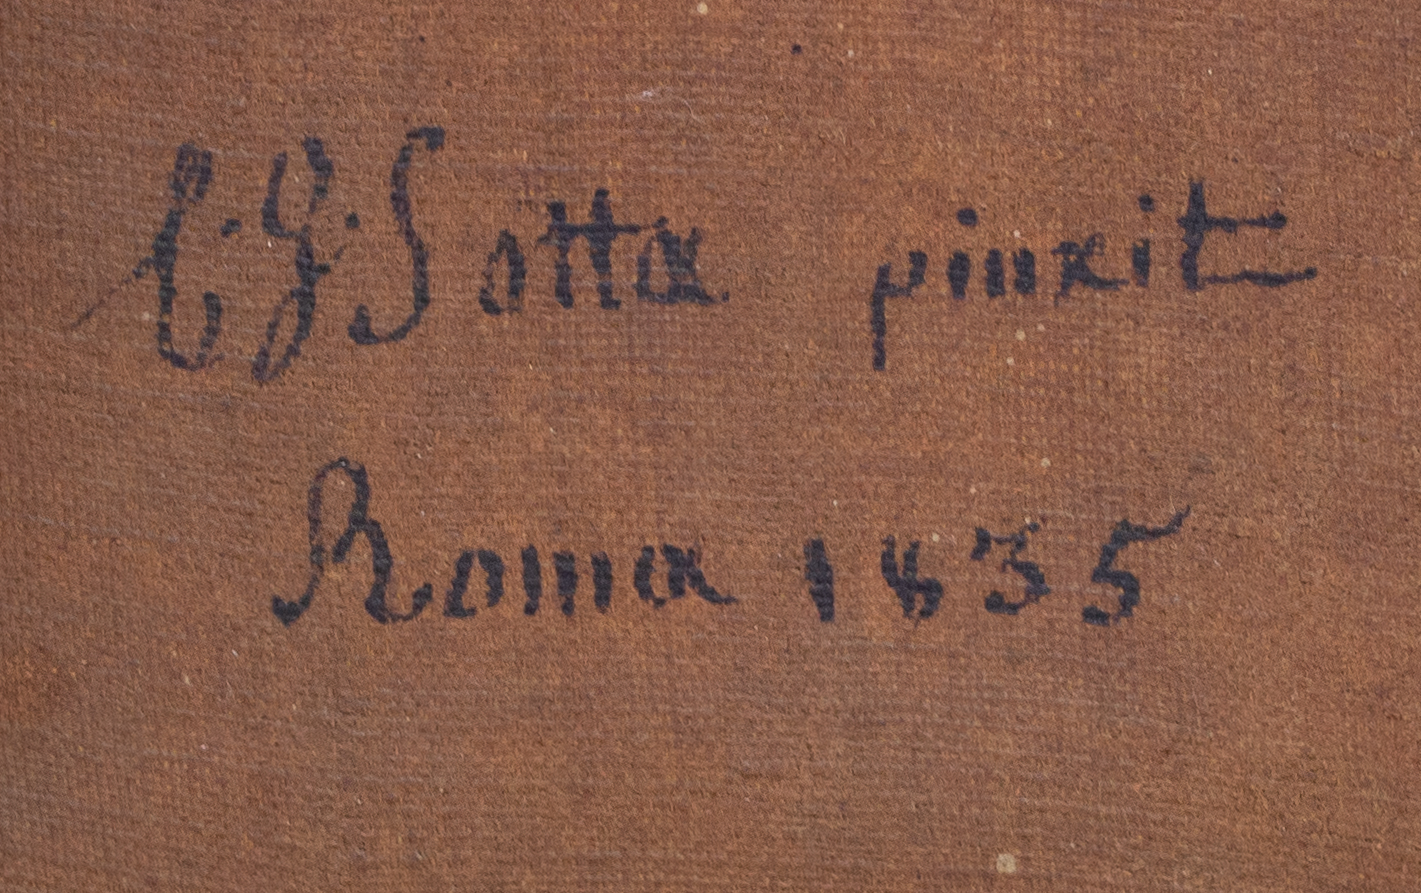 C. J. Sotta pinxit
Roma 1835